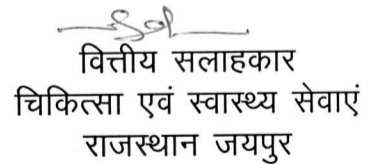 वित्तीय सलाहकार
चिकित्सा एवं स्वास्थ्य सेवाएं
राजस्थान जयपुर